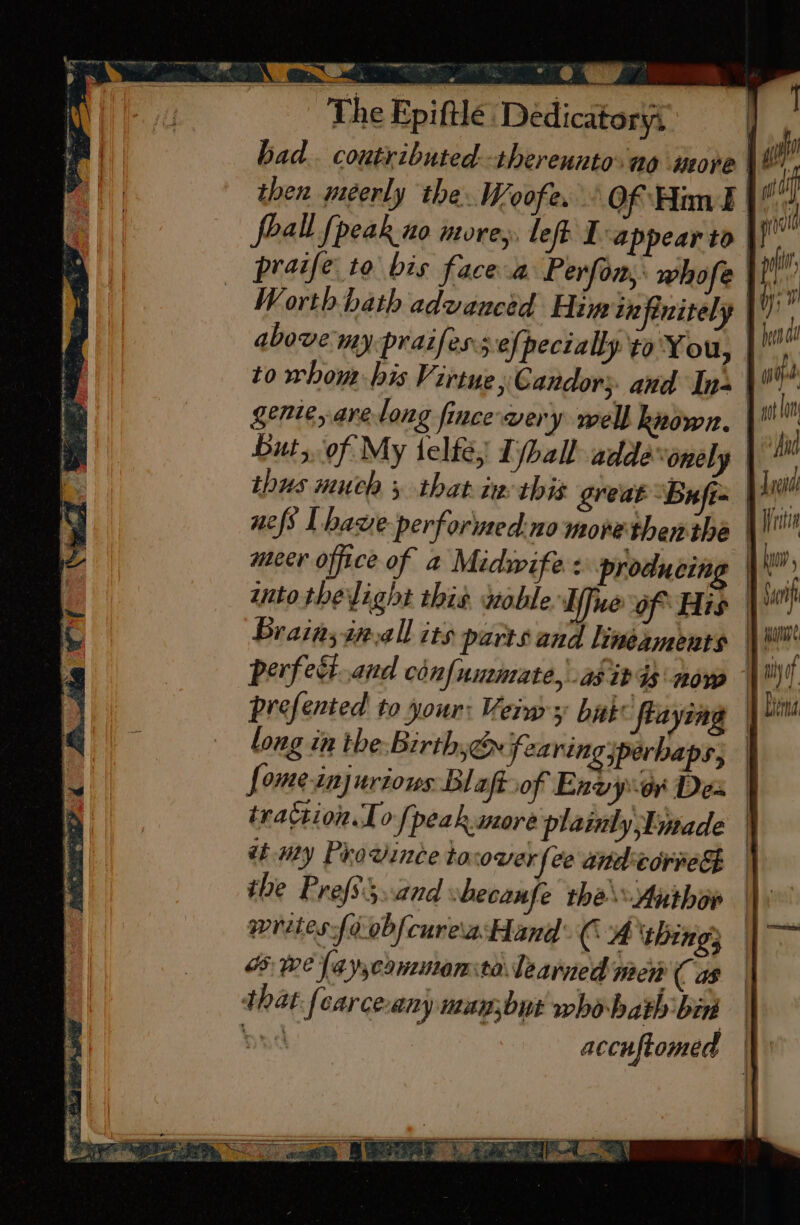 The Epiſtle Dedicatory.
had contributed thereunto no more
then meerly the Woofe. Of Him I
ſhall ſpeak no more, leſt I appear to
praiſe to his face a Perſon, whoſe
Worth hath advanced Him infinitely
above my praiſes; eſpecially to You,
to whom his Virtue, Candor, and In-
genie, are long ſince very well known.
But, of My ſelfe, I ſhall adde onely
thus much; that in this great Buſi-
neſs I have performed no more then the
meer office of a Midwife: producing
into the light this noble Iſſue of His
Brain, in all its parts and lineaments
perfect and conſummate, as it is now
preſented to your Veiw; but ſtaying
long in the Birth, & fearing, perhaps,
ſome injurious Blaſt of Envy or De-
traction. To ſpeak more plainly, I made
it my Province to overſee and correct
the Preſs; and becauſe the Author
writes ſo obſcure a Hand (A thing,
as we ſay, common to learned men) as
that ſcarce any man, but who hath bin
accuſtomed